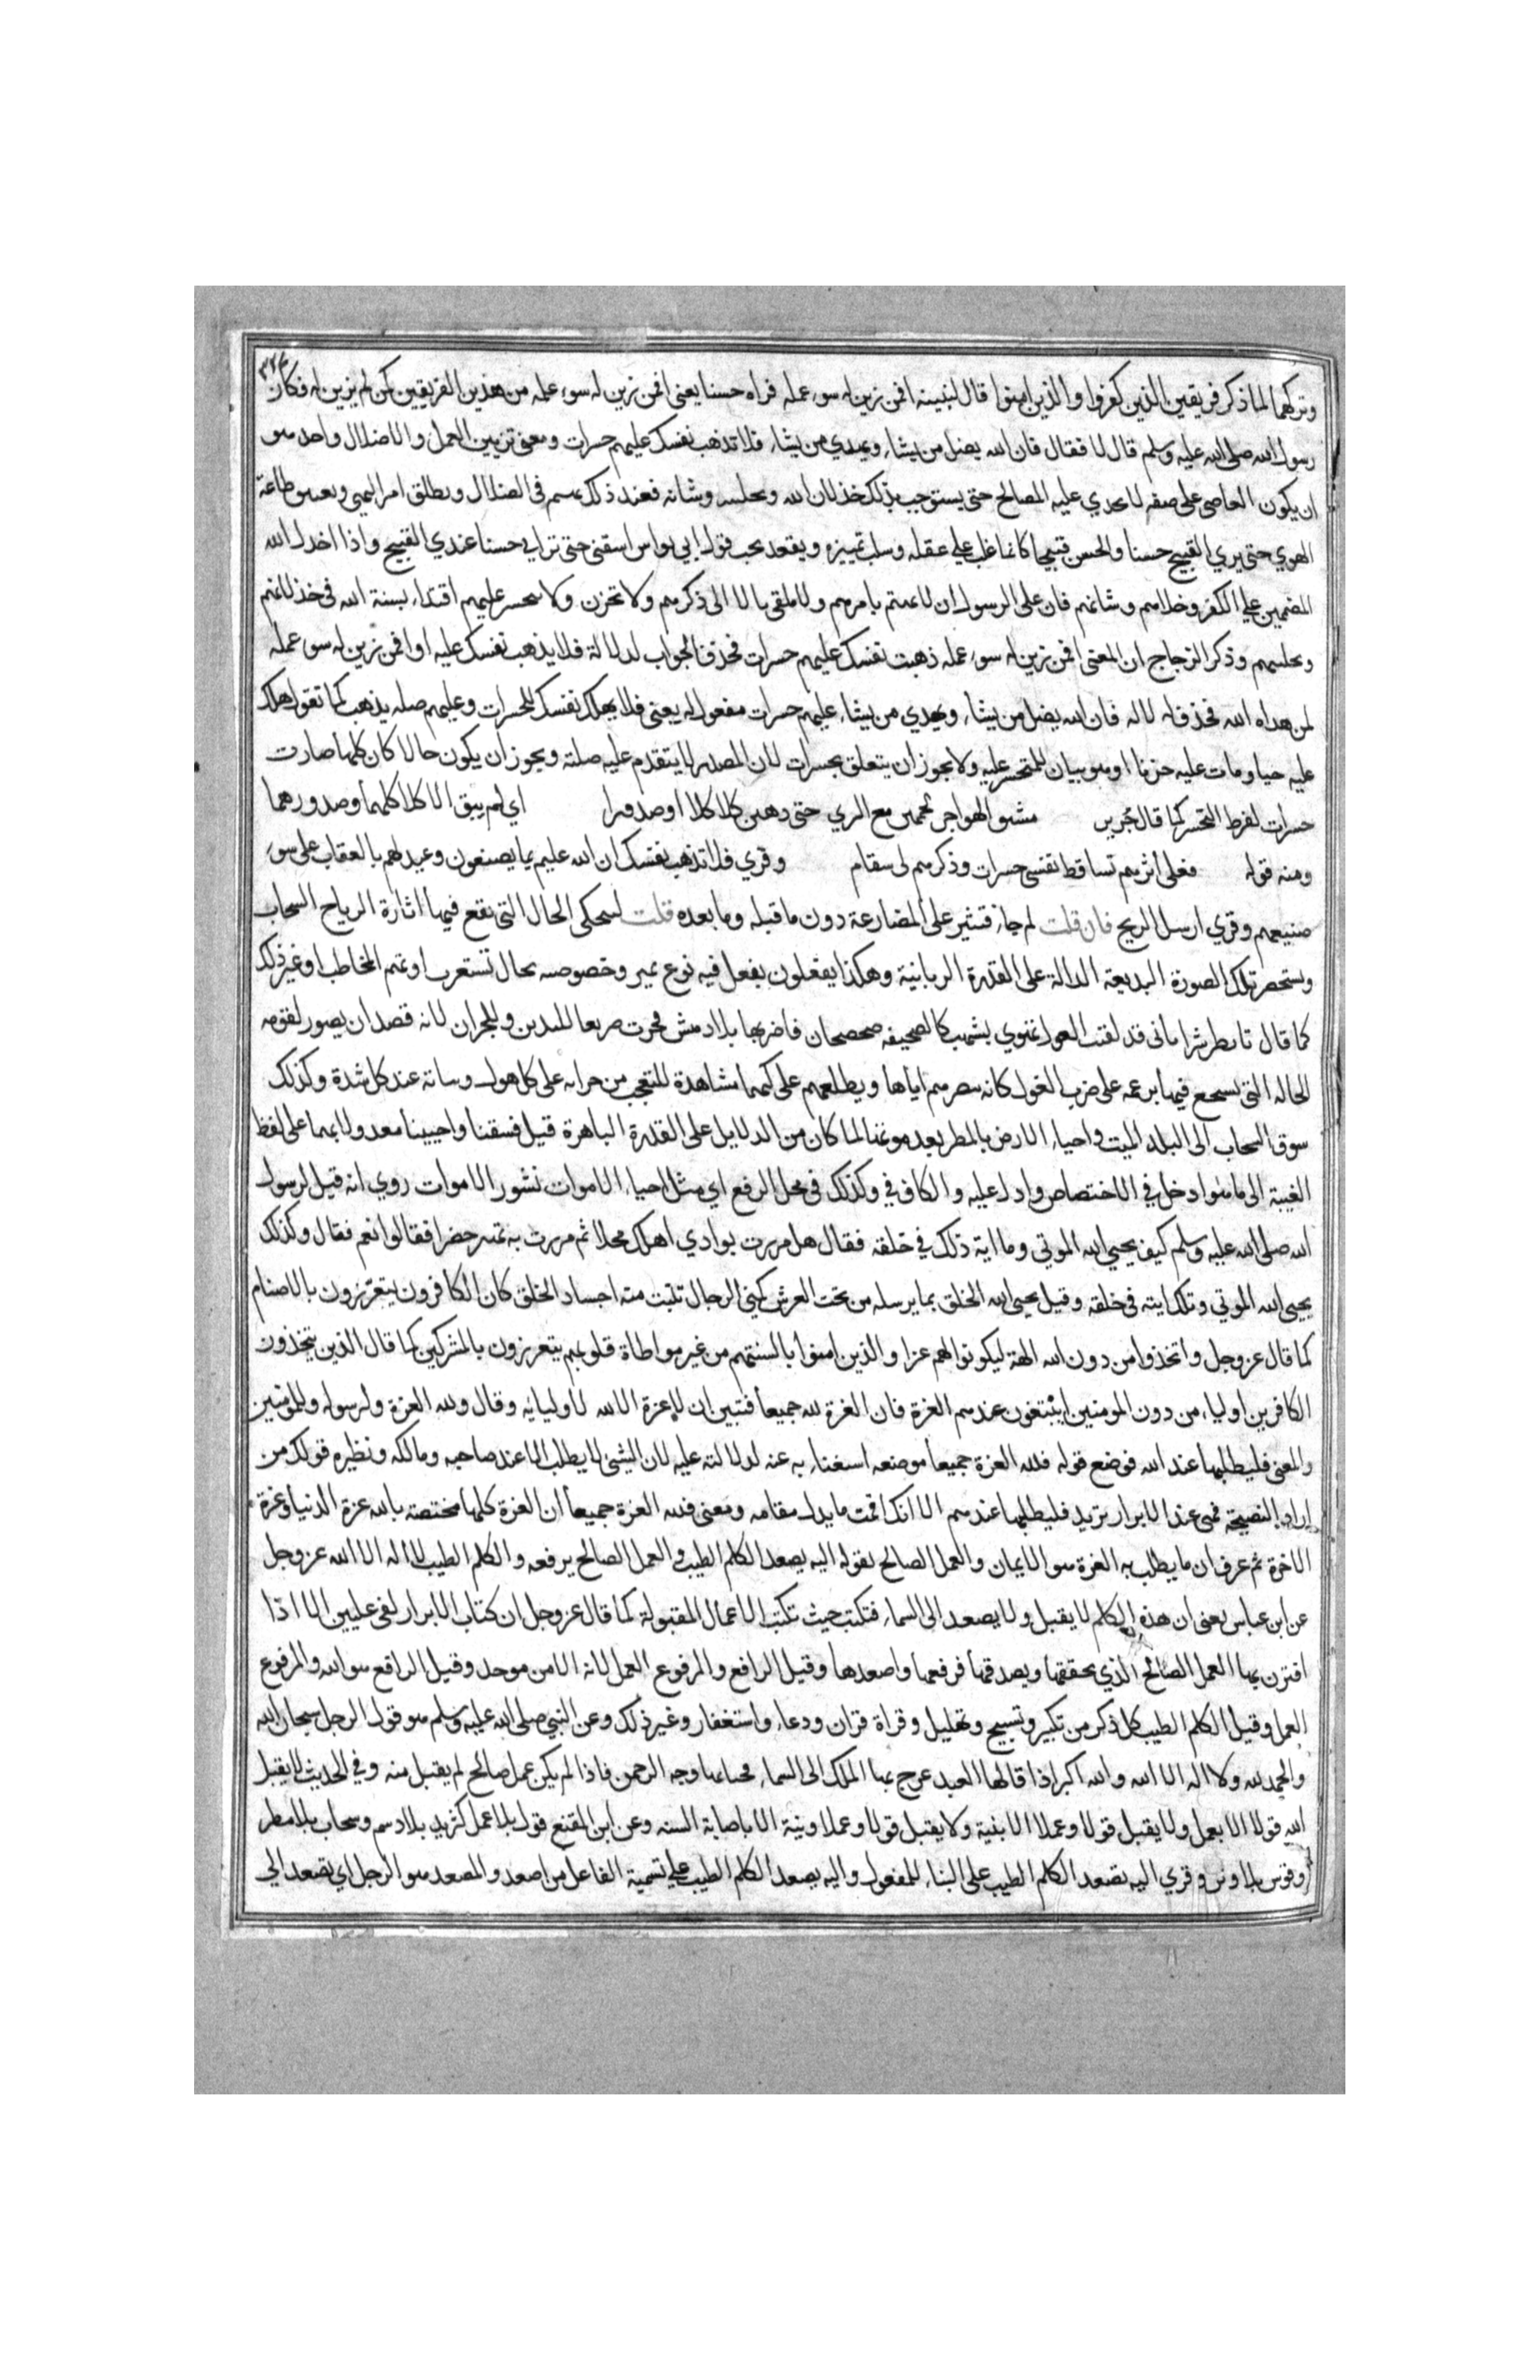 وتركهما لما ذكر فريقين الذين كفروا والذين امنوا قال لنبيه افمن زين له سوء عمله فراه حسنا يعني افمن زين له سوء عمله من هذين الفريقين كمن لم يزين له فكان
رسول الله صلى الله عليه وسلم قال لا فقال فان الله يضل من يشاء ويهدي من يشاء فلا تذهب نفسك عليهم حسرات ومعنى تزيين العمل والاضلال واحد هو
ان يكون العاصي على صفه لا تجدي عليه المصالح حتى يستوجب بذلك خذلان الله وتخليته وشانه فعند ذلك يهيم في الضلال ويطلق امر النهي ويعتنق طاعة
الهوي حتى يري القبيح حسنا والحسن قبيحا كانما غلب على عقله وسلب تمييزه ويقعد تحت قول ابي نواس اسقني حتى تراني حسنا عندي القبيح واذا اخذل الله
المصممين على الكفر وخلاهم وشانهم فان على الرسول ان لا يهتم بامرهم ولا يلقي بالا الى ذكرهم ولا يحزن ولا يتحسر عليهم اقتداء بسنة الله في خذلانهم
وتخليتهم وذكر الزجاج ان المعنى افمن زين له سوء عمله ذهبت نفسك عليهم حسرات فحذف الجواب لدلالة فلا يذهب نفسك عليه او افمن زين له سوء عمله
لمن هداه الله فحذف له لاله فان الله يضل من يشاء ويهدي من يشاء عليهم حسرات مفعول له يعني فلا يهلك نفسك للحسرات وعليهم صله يذهب كما تقول هلك
عليه حيا ومات عليه حزنا او هو بيان للمتحسر عليه ولا يجوز ان يتعلق بحسرات لان المصدر لا يتقدم عليه صلته ويجوز ان يكون حالا كان كلها صارت
حسرات لفرط التحسر كما قال جرير مشق الهواجر لحمهن مع السري حتى ذهبن كلاكلا وصدورا اي لم يبق الا كلاكلها وصدورها
ومنه قوله فعلى اثرهم تساقط نفسي حسرات وذكرهم لي سقام وقري فلا تذهب نفسك ان الله عليم بما يصنعون وعيد لهم بالعقاب على سوء
صنيعهم وقري ارسل الريح فان قلت لم جاء فتثير على المضارعة دون ما قبله وما بعده قلت لتحكى الحال التي تقع فيها اثارة الرياح السحاب
وتستحضر تلك الصورة البديعة الدالة على القدرة الربانية وهكذا يفعلون بفعل فيه نوع تميز وخصوصيه بحال تستغرب او تهم المخاطب او غير ذلك
كما قال تابط شرا باني قد لقيت الغول تهوي بشهب كالصحيفه صحصحان فاضربها بلا دهش فخرت صريعا لليدين وللجران لانه قصد ان يصور لقومه
الحاله التي تشجع فيها بزعمه على ضرب الغول كانه يبصرهم اياها ويطلعهم على كنهها مشاهدة للتعجب من جراته على كل هول وثباته عند كل شدة وكذلك
سوق السحاب الى البلد الميت واحياء الارض بالمطر بعد موتها لما كان من الدلايل على القدرة الباهرة قيل فسقنا واحيينا معدولا بهما على لفظ
الغيبة الى ما هو ادخل في الاختصاص وادل عليه والكاف في وكذلك في محل الرفع اي مثل احياء الاموات نشور الاموات روي انه قيل لرسول
الله صلى الله عليه وسلم كيف يحيي الله الموتى وما اية ذلك في خلقه فقال هل مررت بوادي اهلك محلا ثم مررت به تهتز خضرا فقالوا نعم فقال وكذلك
يحيى الله الموتى وتلك ايته في خلقه وقيل يحيى الله الخلق بما يرسله من تحت العرش كمني الرجال تنبت منه اجساد الخلق كان الكافرون يتعززون بالاصنام
كما قال عز وجل واتخذوا من دون الله الهة ليكونوا لهم عزا والذين امنوا بالسنتهم من غير مواطاة قلوبهم يتعززون بالمشركين كما قال الذين يتخذون
الكافرين اولياء من دون المومنين ايبتغون عندهم العزة فان العزة لله جميعا فتبين ان لا عزة الا لله لاوليائه وقال ولله العزة ولرسوله وللمومنين
والمعنى فليطلبها عند الله فوضع قوله فلله العزة جميعا موضعه استغناء به عنه لدلالته عليه لان الشيء لا يطلب الا عند صاحبه ومالكه ونظيره قولك من
اراد النصيحة فهي عند الابرار تريد فليطلبها عندهم الا انك اقمت ما يدل مقامه ومعنى فلله العزة جميعا ان العزة كلها مختصة بالله عزة الدنيا وعزة
الاخرة ثم عرف ان ما يطلب به العزة هو الايمان والعمل الصالح بقوله اليه يصعد الكلم الطيب والعمل الصالح يرفعه والكلم الطيب لا اله الا الله عز وجل
عن ابن عباس يعني ان هذه الكلم لا يقبل ولا يصعد الى السماء فتكتب حيث تكتب الاعمال المقبولة كما قال عز وجل ان كتاب الابرار لفي عليين الا اذا
اقترن بها العمل الصالح الذي يحققها ويصدقها فرفعها واصعدها وقيل الرافع والمرفوع العمل لانه الا من موحد وقيل الرافع هو الله والمرفوع
العمل وقيل الكلم الطيب كل ذكر من تكبير وتسبيح وتهليل وقراة قران ودعاء واستغفار وغير ذلك وعن النبي صلى الله عليه وسلم هو قول الرجل سبحان الله
والحمد لله ولا اله الا الله والله اكبر اذا قالها العبد عرج بها الملك الى السماء فحيا بها وجه الرحمن فاذا لم يكن عمل صالح لم يقبل منه وفي الحديث لا يقبل
الله قولا الا بعمل ولا يقبل قولا وعملا الا بنية ولا يقبل قولا وعملا ونية الا باصابة السنه وعن ابن المقفع قول بلا عمل كثريد بلا دسم وسحاب بلا مطر
وقوس بلا وتر وقري اليه تصعد الكلم الطيب على البناء للمفعول واليه يصعد الكلم الطيب على تسمية الفاعل من اصعد والمصعد هو الرجل اي تصعد الى